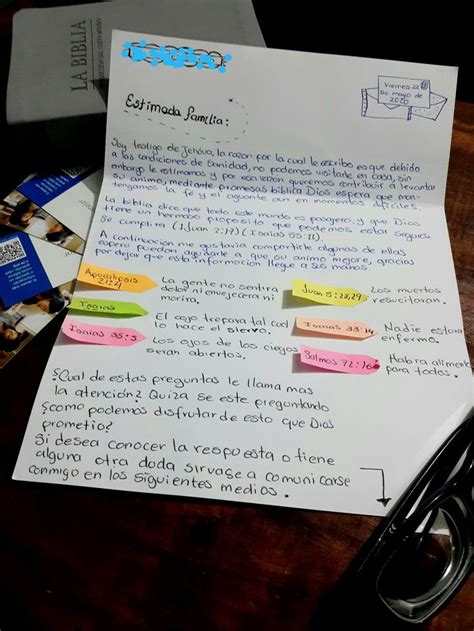 LA BIBLIA
Viernes 22
De mayo de
2020
Estimada familia:
Soy testigo de Jehova, la razon por la cual le escribo es que debido
a las condiciones de Sanidad, no podemos visitarle en casa, sin
embargo le estimamos y por esa razon queremos contribuir a levantar
su animo, mediante promesas biblica Dios espera que man-
tengamos la fé y el aguante aun en momentos dificiles.
La biblia dice que todo este mundo es pasajero, y que Dios
tiene un hermoso proposito que podemos estar seguros
Se cumplira (1 Juan 2:17) (Isaias 55:11)
A continuacion me gustaria compartirle algunas de ellas
espero puedan ayudarle a que su animo mejore, gracias
por dejar que esta informacion llegue a sus manos.
Apocalipsis
21:4
La gente no sentira
dolor ni envejecera ni
morira.
Juan 5:28,29
Los muertos
resucitaran.
Isaias
El cojo trepara tal cual
lo hace el siervo.
Isaias 33:24
Nadie estara
enfermo.
Isaias 35:5
Los ojos de los ciegos
seran abiertos.
Salmos 72:16
Habra alimento
para todos.
¿Cual de estas preguntas le llama mas
la atención? Quiza se este preguntando
¿como podemos disfrutar de esto que Dios
prometio?
Si desea conocer la respuesta o tiene
alguna otra duda sirvase a comunicarse
conmigo en los siguientes medios.